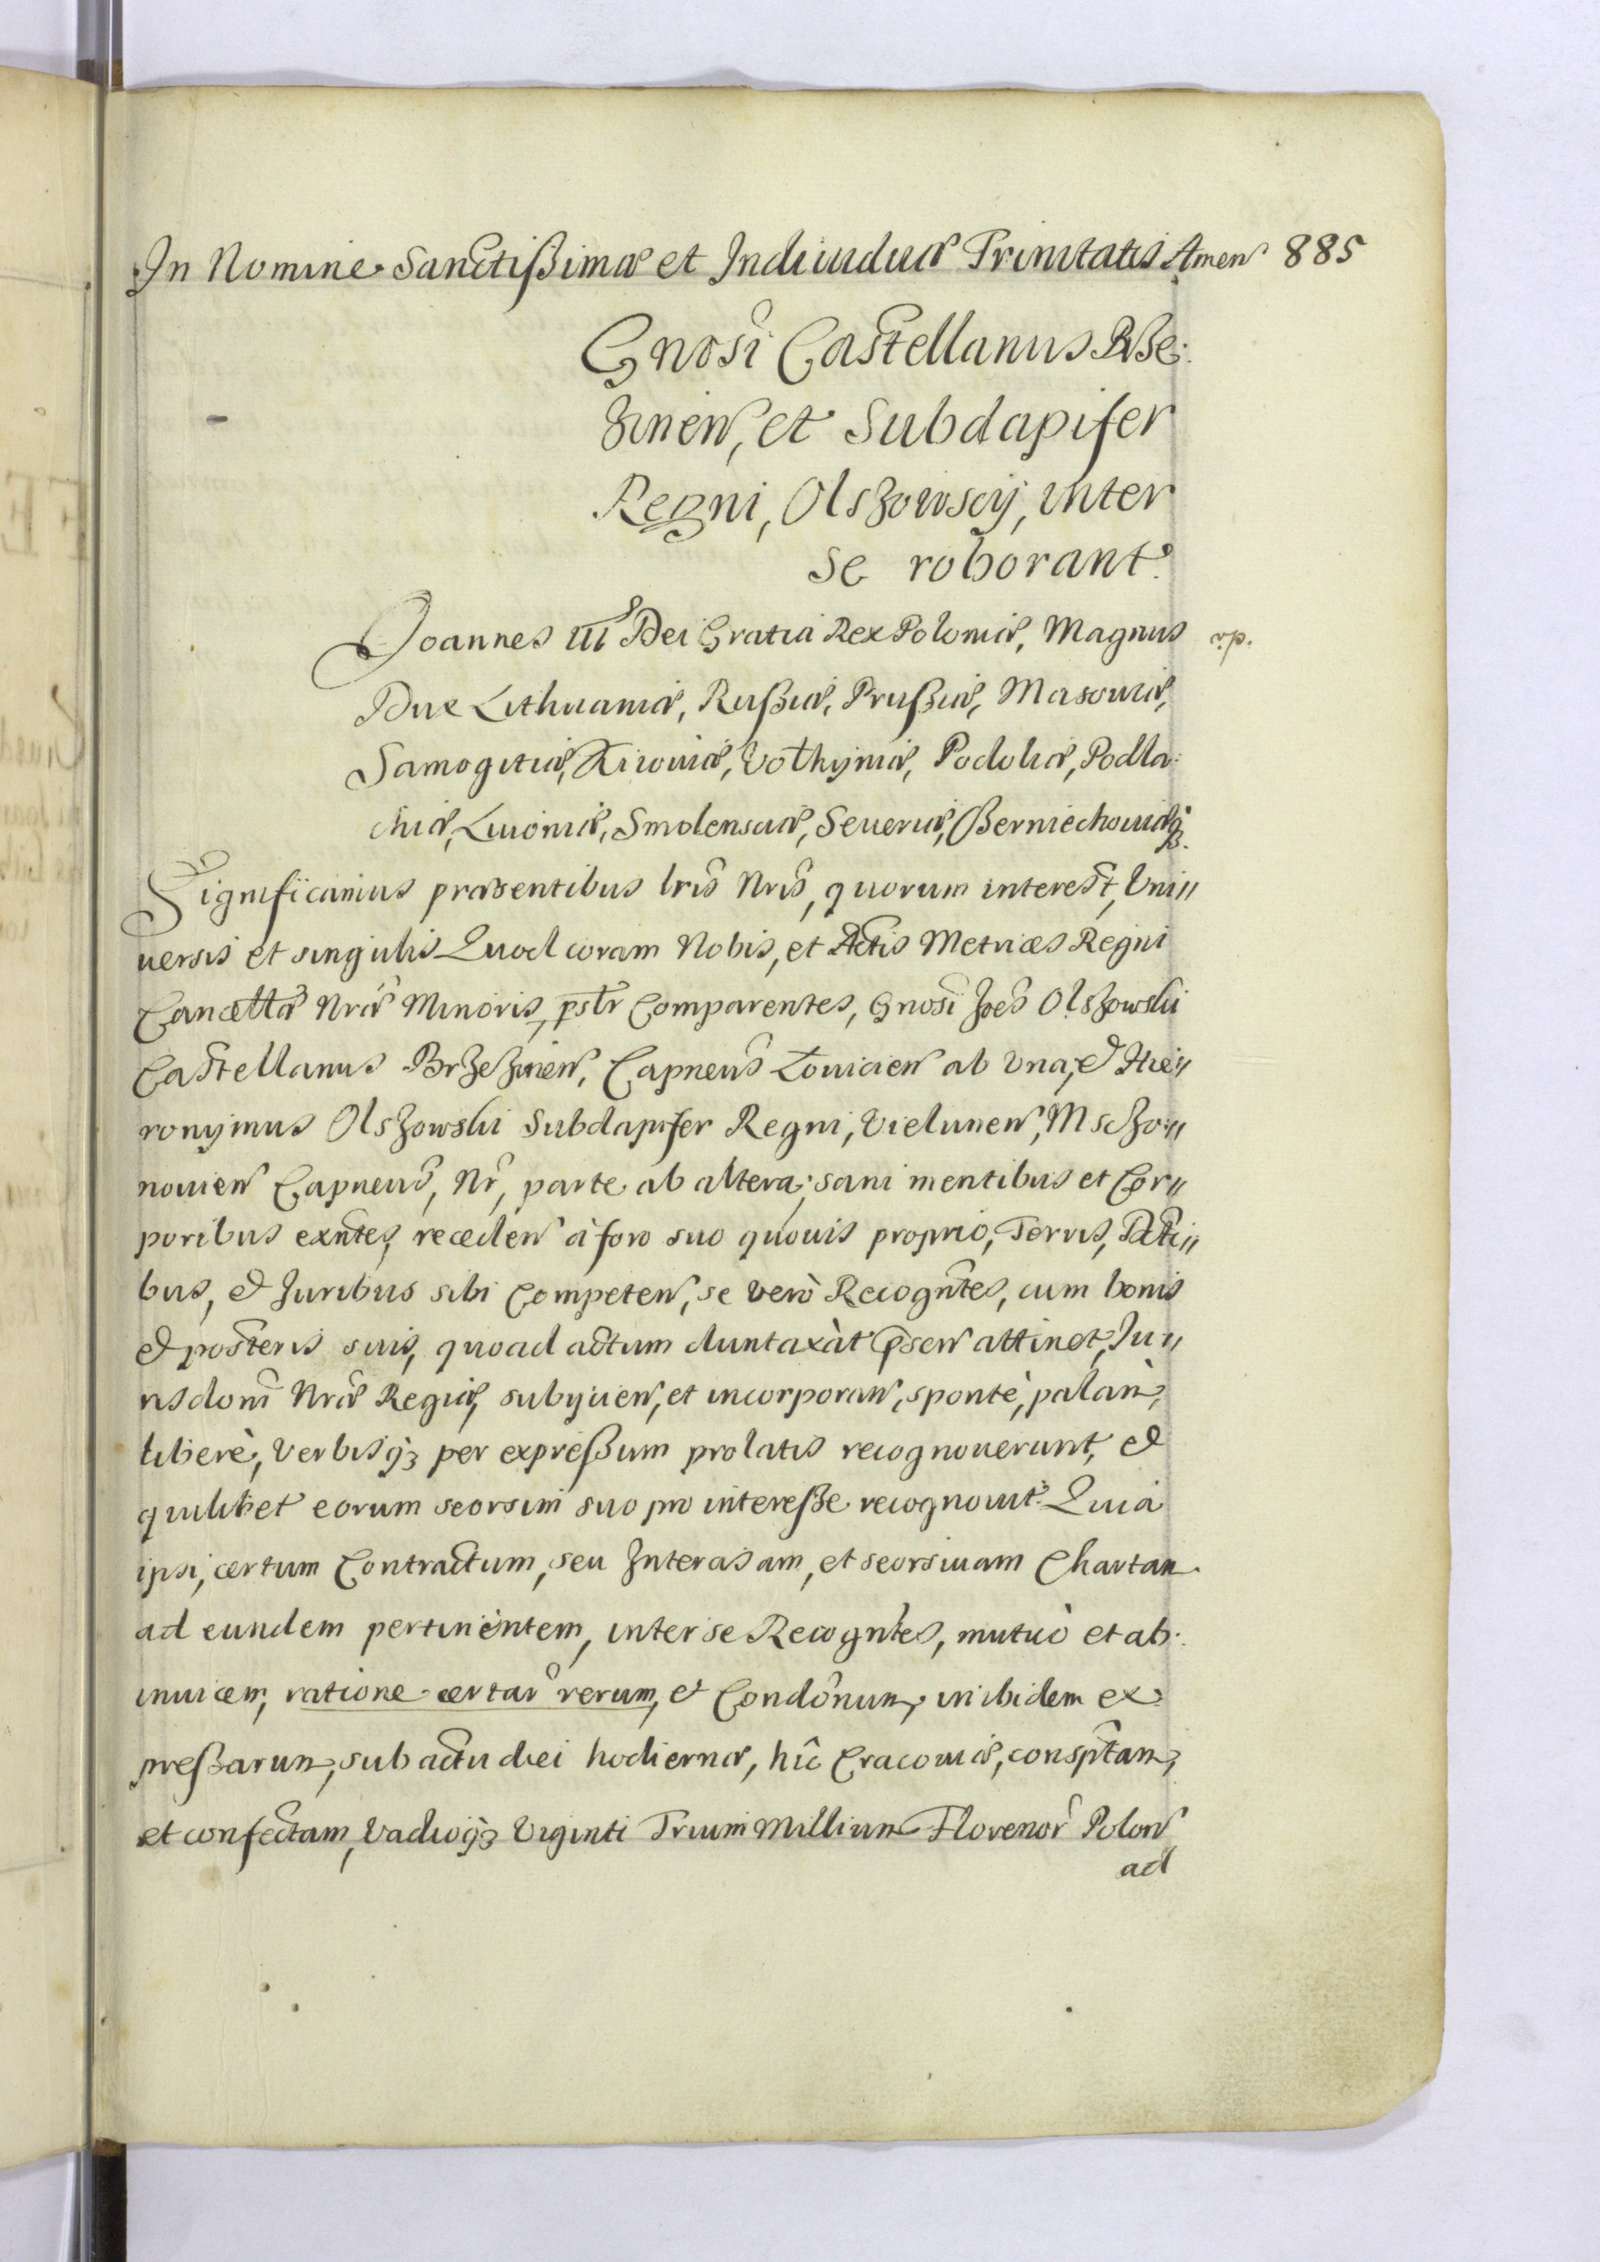 In Nomine Sanctißimæ et Indiuiduæ Trinitatis Amen 885
Gnosi Castellanus Brze:
zinen, et Subdapifer
Regni, Olszowscÿ, inter
se roborant.
Joannes III Dei Gratia Rex Poloniæ, Magnus
Dux Lithuaniæ, Rußiæ, Prußiæ, Masouiæ,
Samogitiæ, Kiiouiæ, Volhyniæ, Podoliæ, Podla:
chiæ, Liuoniæ, Smolensciæ, Seueriæ, Czerniechouiæq3.
Significamus præsentibus lris Nris, quorum interest, Vni//
uersis et singulis Quod coram Nobis, et Actis Metrices Regni
Cancellæ Nræ Minoris, pslr Comparentes, Gnosi Joes Olszowski
Castellanus Brzezinen, Capneus Louicien ab vna, et Hie//
ronymus Olszowski Subdapifer Regni, Vielunen, Mszczo//
nouien Capneus, Nr, parte ab altera, sani mentibus et Cor//
poribus exntes, receden à foro suo quouis proprio, Terris, Dicti//
bus, et Juribus sibi Competen, se verò Recogntes, cum bonis
et posteris suis, quoad actum duntaxàt psen attinet, Ju//
risdoni Nræ Regiæ, subijcien, et incorporan, spontè, palàm,
liberè, verbisq3 per expreßum prolatis recognouerunt, et
quilibet eorum seorsim suo pro intereße recognouit. Quia
ipsi, certum Contractum, seu Intercisam, et seorsiuam Chartam
ad eundem pertinentem, inter se Recogntes, mutuò et ab:
inuicem, ratione certar rerum, et Condonum, inibidem ex
preßarum, sub actu diei hodiernæ, hîc Cracouiæ, consptam,
et confectam, Vadioq3 Viginti Trium Millium Florenor Polon
ad